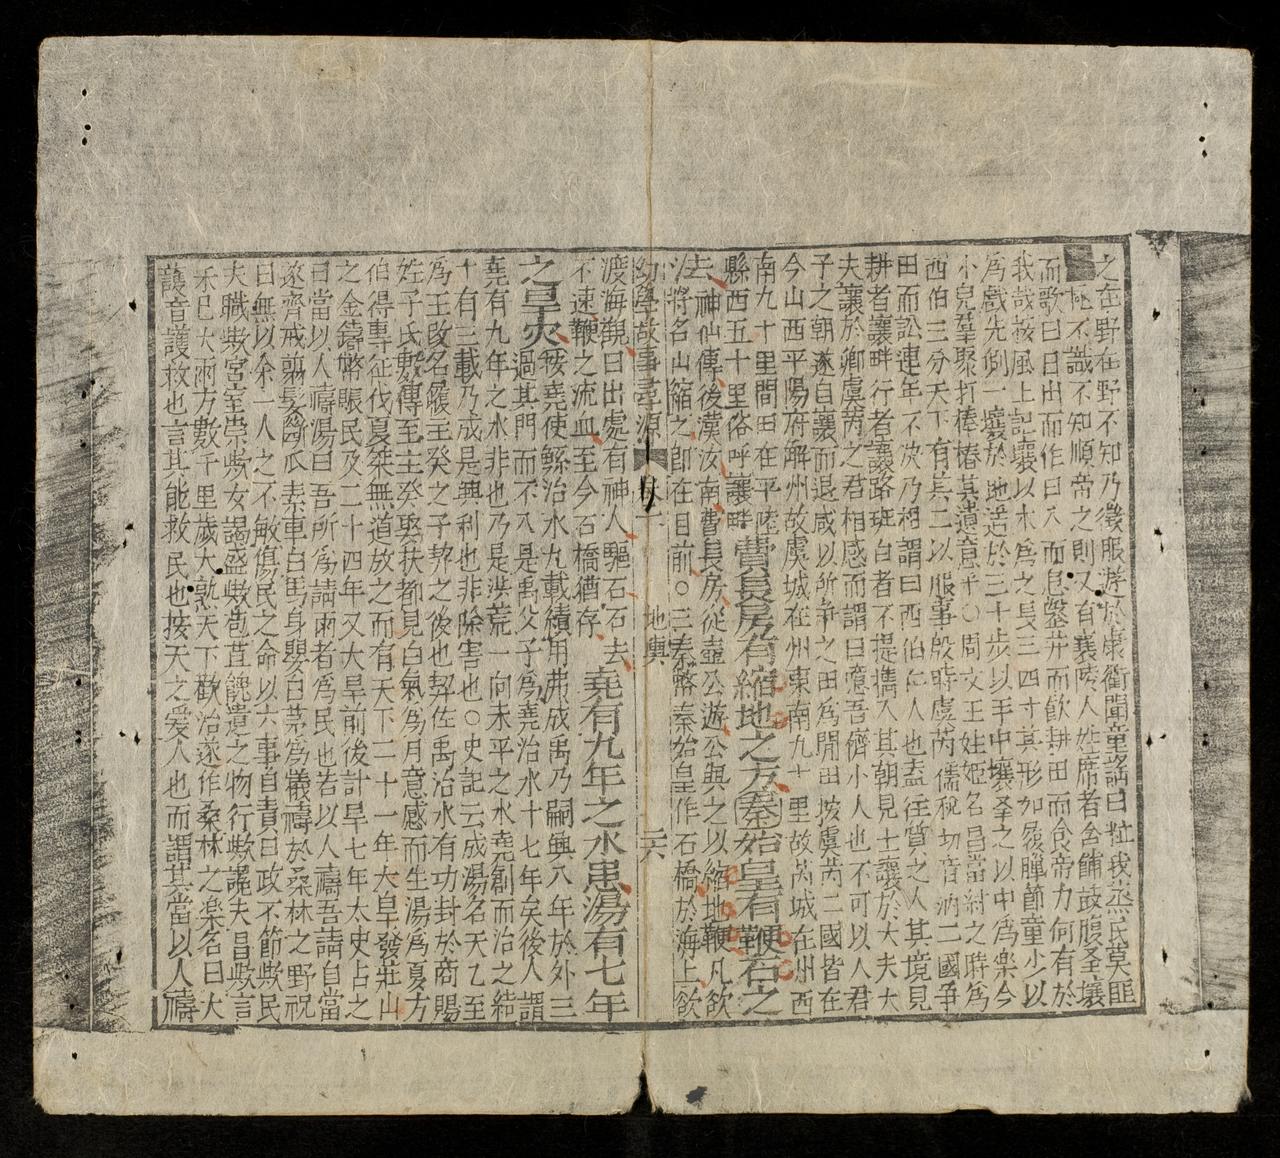 之在野在野不知乃微服遊於康衢聞童謠曰粒我蒸民莫匪
極不識不知順帝之則又有襄陵人姓席者含餔鼓腹圣壤
而歌曰日出而作日入而息鑿井而飲耕田而食帝力何有於
我哉按風土記壤以木為之長三四寸其形如履臘節童少以
為戲先側一壤於地遥於三十步以手中壤擊之以中為樂今
小兒羣聚打棒樁其遺意乎○周文王姓姬名昌當紂之時為
西伯三分天下有其二以服事殷時虞芮儒稅切音汭二國爭
田而訟連年不決乃相謂曰西伯仁人也盍往質之人其境見
耕者讓畔行者讓路班白者不提攜入其朝見士讓於大夫大
夫讓於卿虞芮之君相感而謂曰噫吾儕小人也不可以人君
子之朝遂自讓而退咸以所爭之田為閒田按虞芮二國皆在
今山西平陽府解州故虞城在州東南九十里故芮城在州西
南九十里間田在平陸
縣西五十里俗呼讓畔費長房有縮地之方秦始皇有鞭石之
法神仙傳後漢汝南費長房從壺公遊公與之以縮地鞭凡欲
將名山縮之即在目前○三秦略秦始皇作石橋於海上欲
幼學故事尋源 地輿 二六
渡海觀日出處有神人驅石石去
不速鞭之流血至今石橋猶存堯有九年之水患湯有七年
之旱災按堯使鯀治水九載績用弗成禹乃嗣興八年於外三
過其門而不入是禹父子為堯治水十七年矣後人謂
堯有九年之水非也乃是洪荒一向未平之水堯創而治之結
十有三載乃成是興利也非除害也○史記云成湯名天乙至
為王改名履主癸之子契之後也契佐禹治水有功封於商賜
姓子氏數傳至主癸娶扶都見白氣為月意感而生湯為夏方
伯得專征伐夏桀無道放之而有天下二十一年大旱發莊山
之金鑄幣賑民及二十四年又大旱前後計旱七年太史占之
曰當以人禱湯曰吾所為請雨者為民也若以人禱吾請自當
遂齊戒剪髮斷爪素車白馬身嬰白茅為犧禱於桑林之野祝
曰無以余一人之不敏傷民之命以六事自責曰政不節歟民
失職歟宮室崇歟女謁盛歟苞苴餽遺之物行歟讒夫昌歟言
未已大雨方數千里歲大熟天下歡洽遂作桑林之樂名曰大
頀音護救也言其能救民也按天之愛人也而謂其當以人禱